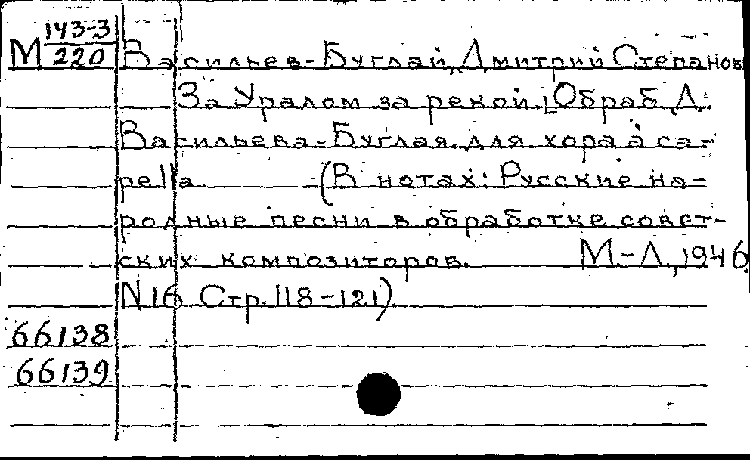 М 143-3/220 Васильев-Буглай, Дмитрий Степанов
За Уралом за рекой. [Обраб. Д.
Васильева-Буглая для хора a cap-
pella. (В нотах: Русские на-
родные песни в обработке совет-
ских композиторов. М-Л, 1946
N 16 Стр. 118-121)
66138
66139